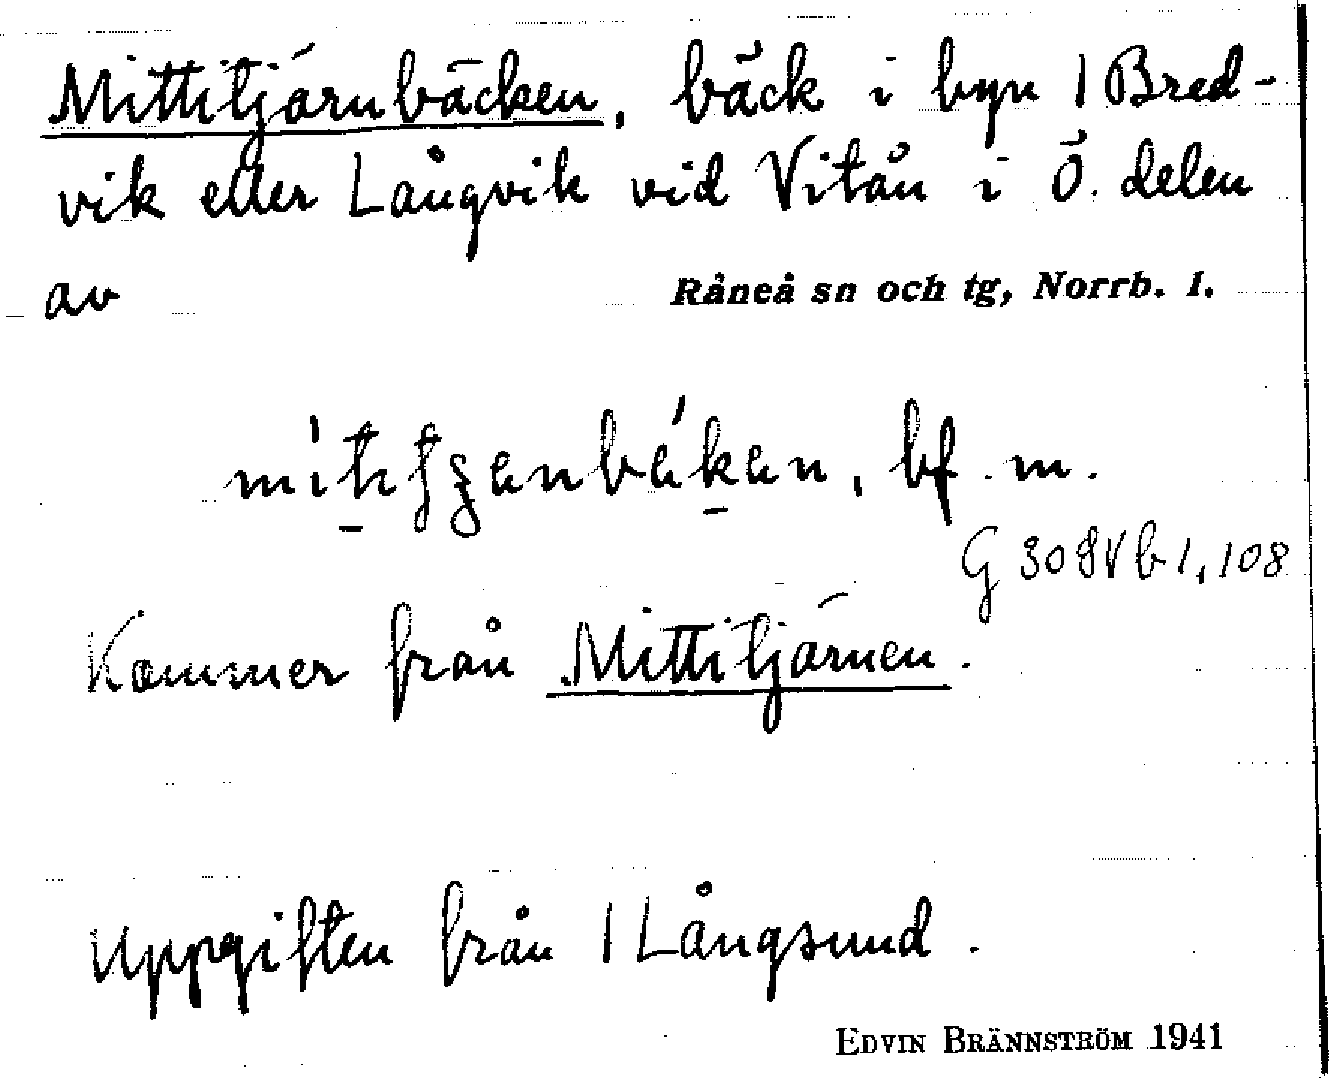 Mittitjärnbäcken, bäck i byn 1 Bred-
vik eller Långvik vid Vitån i Ö. delen
av Råneå sn och tg, Norrb. l.
bf. m.
G 308 Vb 1, 108
Kommer från Mittitjärnen.
Uppgiften från 1 Långsund.
EDVIN BRÄNNSTRÖM 1941